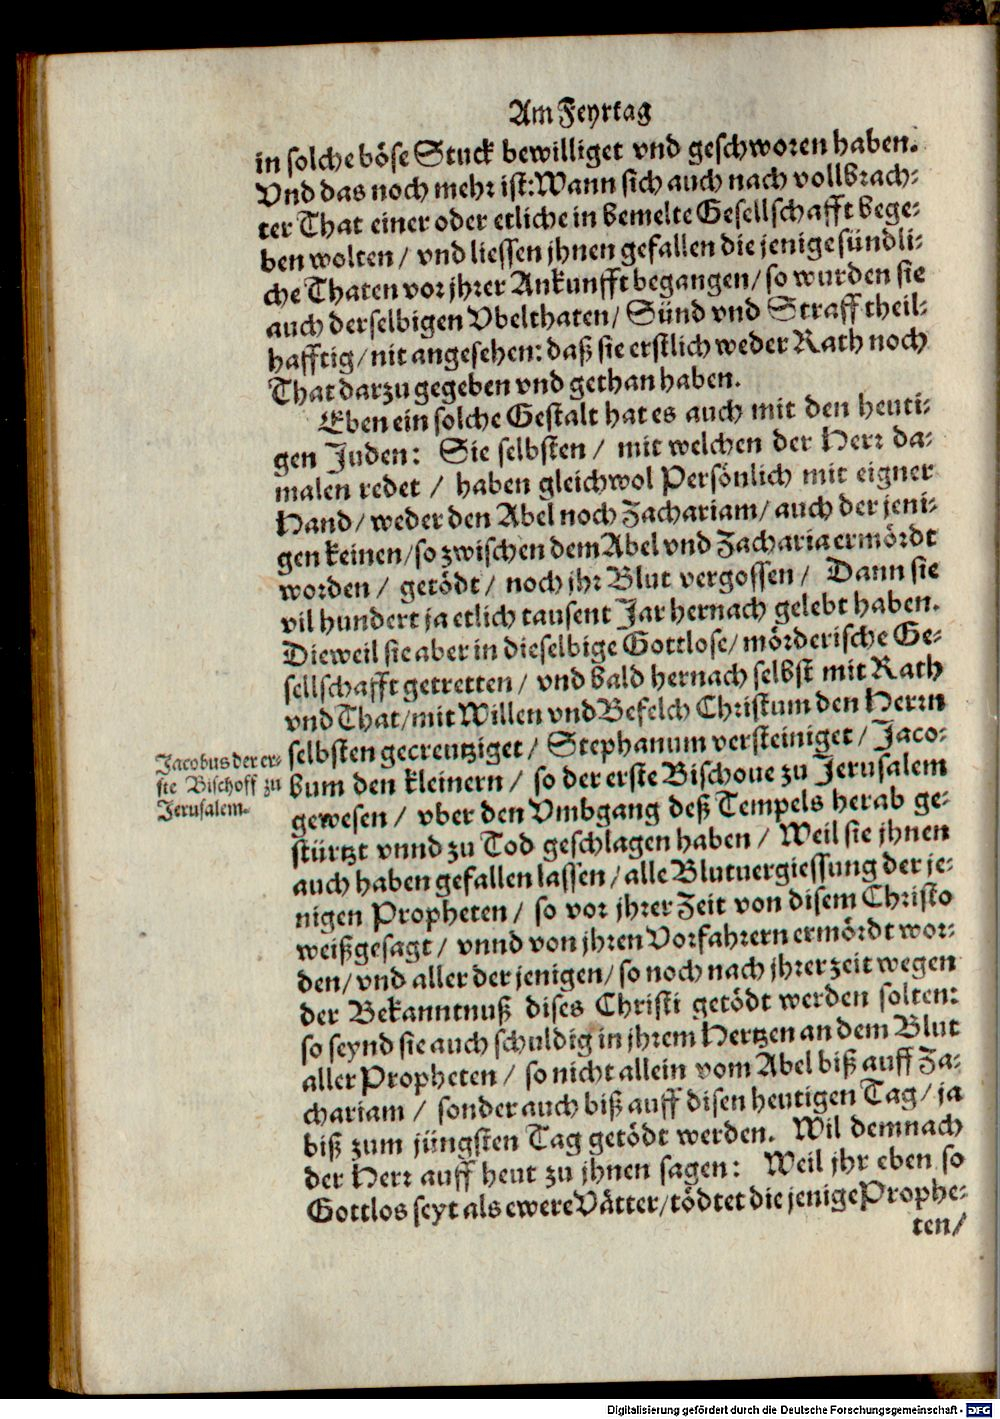 Am Feyrtag
in solche böse Stuck bewilliget vnd geschworen haben.
Vnd das noch mehr ist: Wann sich auch nach vollbrach-
ter That einer oder etliche in bemelte Gesellschafft bege-
ben wolten / vnd liessen jhnen gefallen die jenige sündli-
che Thaten vor jhrer Ankunfft begangen / so wurden sie
auch derselbigen Vbelthaten / Sünd vnd Straff theil-
hafftig / nit angesehen: daß sie erstlich weder Rath noch
That darzu gegeben vnd gethan haben.
Eben ein solche Gestalt hat es auch mit den heuti-
gen Juden: Sie selbsten / mit welchen der Herr da-
malen redet / haben gleichwol Persönlich mit eigner
Hand / weder den Abel noch Zachariam / auch der jeni-
gen keinen / so zwischen dem Abel vnd Zacharia ermördt
worden / getödt / noch jhr Blut vergossen / Dann sie
vil hundert ja etlich tausent Jar hernach gelebt haben.
Dieweil sie aber in dieselbige Gottlose / mörderische Ge-
sellschafft getretten / vnd bald hernach selbst mit Rath
vnd That / mit Willen vnd Befelch Christum den Herrn
selbsten gecreutziget / Stephanum versteiniget / Jaco-
Jacobus der er-
ste Bischoff zu
Jerusalem.
bum den kleinern / so der erste Bischoue zu Jerusalem
gewesen / vber den Vmbgang deß Tempels herab ge-
stürtzt vnnd zu Tod geschlagen haben / Weil sie jhnen
auch haben gefallen lassen / alle Blutuergiessung der je-
nigen Propheten / so vor jhrer Zeit von disem Christo
weißgesagt / vnnd von jhren Vorfahrern ermördt wor-
den / vnd aller der jenigen / so noch nach jhrer zeit wegen
der Bekanntnuß dises Christi getödt werden solten:
so seynd sie auch schuldig in jhrem Hertzen an dem Blut
aller Propheten / so nicht allein vom Abel biß auff Za-
chariam / sonder auch biß auff disen heutigen Tag / ja
biß zum jüngsten Tag getödt werden. Wil demnach
der Herr auff heut zu jhnen sagen: Weil jhr eben so
Gottlos seyt als ewere Vätter / tödtet die jenige Prophe-
ten /
Digitalisierung gefördert durch die Deutsche Forschungsgemeinschaft - DFG